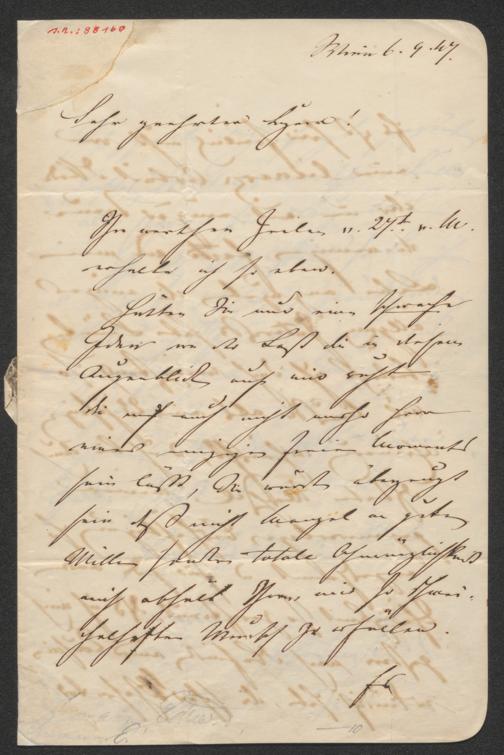 I.N.: 88160
Wien 6. 9. 47.
Sehr geehrter Herr!
Ihre werthen Zeilen v. 27t v. M.
erhalte ich so eben.
Hätten Sie nur eine schwache
Idee von der Last die in diesem
Augenblick auf mir ruht
die mich auch nicht mehr Herr
eines einzigen freien Moments
sein läßt, Sie würden überzeugt
sein daß nicht Mangel an gutem
Willen sondern totale Unmöglichkeit
mich abhält Ihren mir so schmei-
chelhaften Wunsch zu erfüllen.
Es